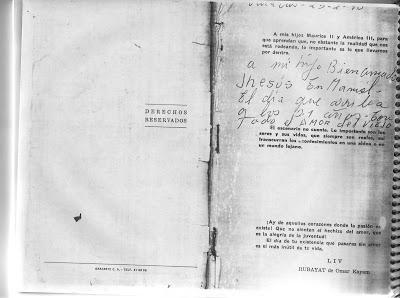 DERECHOS
RESERVADOS
A mis hijos Maurice II y América III, para
que aprendan que, no obstante la realidad que nos
está rodeando, lo importante es lo que llevamos
por dentro.
a mi hijo Bienamado
Jhesús En Manuel
El día que
TODO AMOR
El escenario no cuenta. Lo importante son los
seres y sus vidas, que siempre son reales, así
transcurran los acontecimientos en una aldea o en
un mundo lejano.
¡Ay de aquellos corazones donde la pasión no
existe! Que no sienten el hechizo del amor, que
es la alegría de la juventud!
El día de tu existencia que pasares sin amor
es el más inútil de tu vida.
LIV
RUBAYAT de Omar Kayam